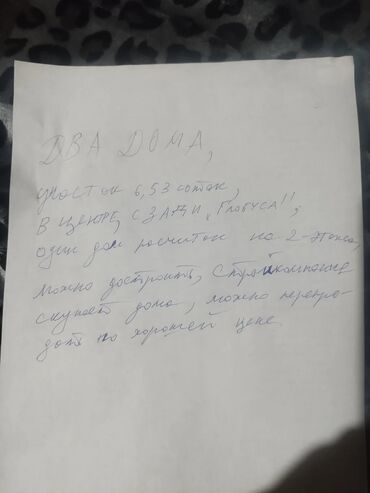 ДВА ДОМА,
участок 6,53 соток,
В ЦЕНТРЕ, СЗАДИ „Глобуса",
один дом расчитан на 2-этажа,
можно достроить, стройкомпания
скупает дома, можно перепро-
дать по хорошей цене.